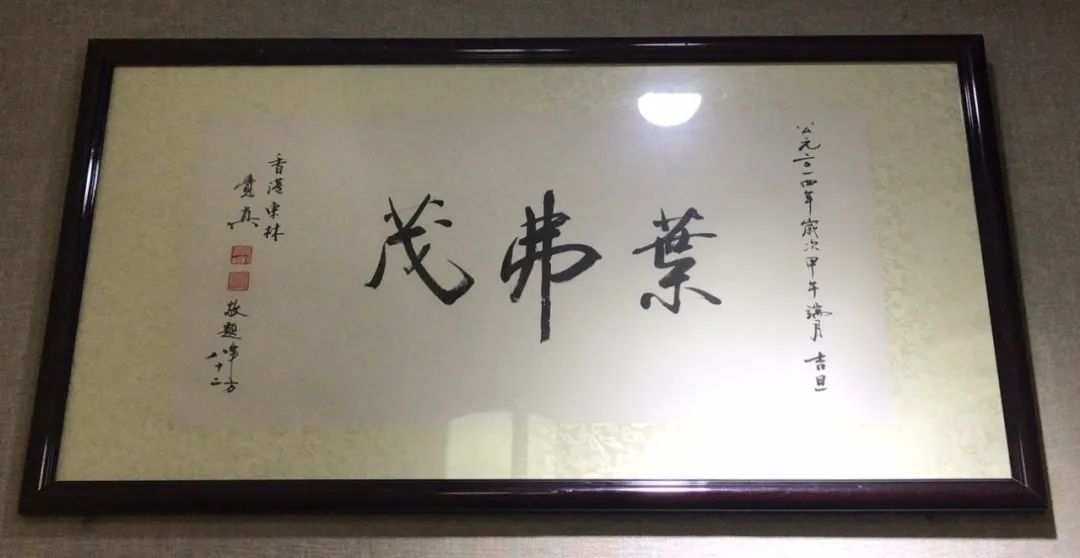 公元二〇一四年歲次甲午端月吉旦
葉弗茂
香港東林
覺真
敬題年方
八十二